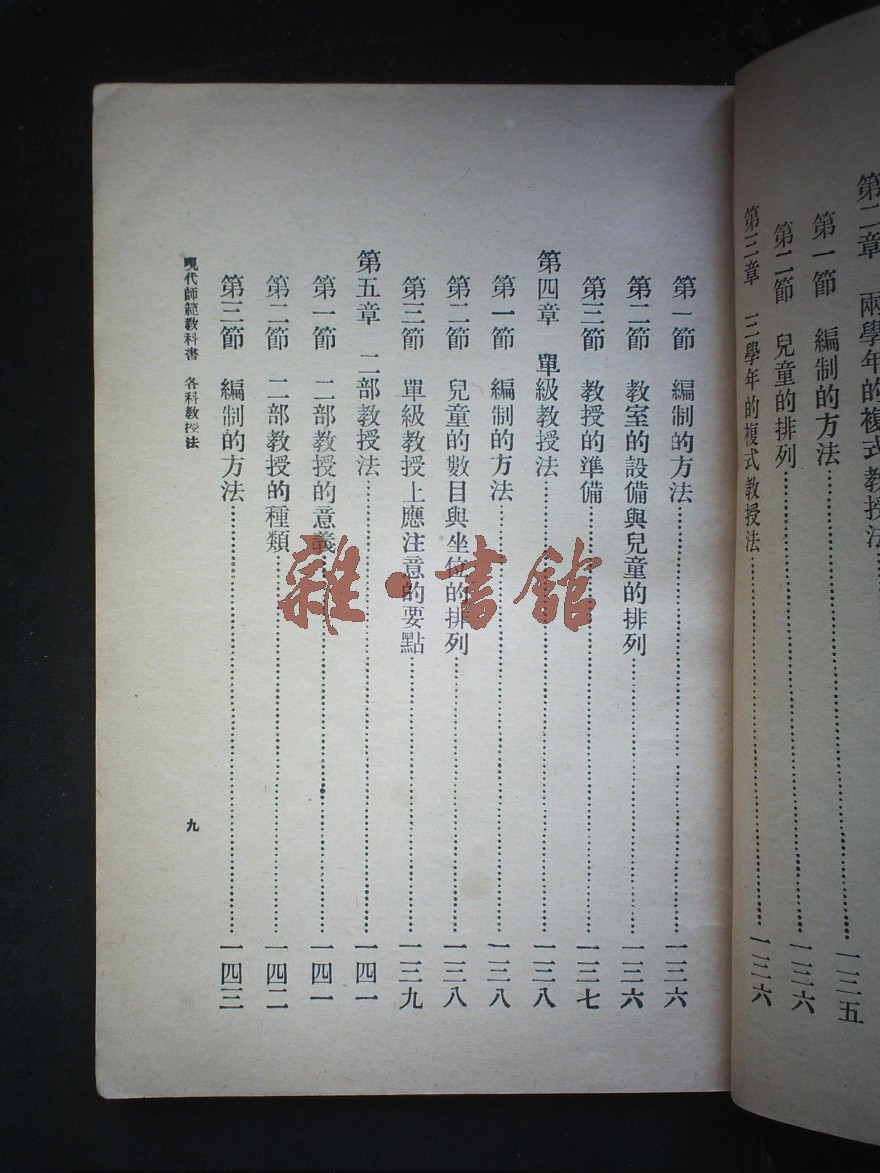 第二章　兩學年的複式教授法
第一節　編制的方法……一三五
第二節　兒童的排列……一三六
第三章　三學年的複式教授法……一三六
第一節　編制的方法……一三六
第二節　教室的設備與兒童的排列……一三六
第三節　教授的準備……一三七
第四章　單級教授法……一三八
第一節　編制的方法……一三八
第二節　兒童的數目與坐位的排列……一三八
第三節　單級教授上應注意的要點……一三九
第五章　二部教授法……一四一
第一節　二部教授的意義……一四一
第二節　二部教授的種類……一四二
第三節　編制的方法……一四三
現代師範教科書　各科教授法
九
雜·書館